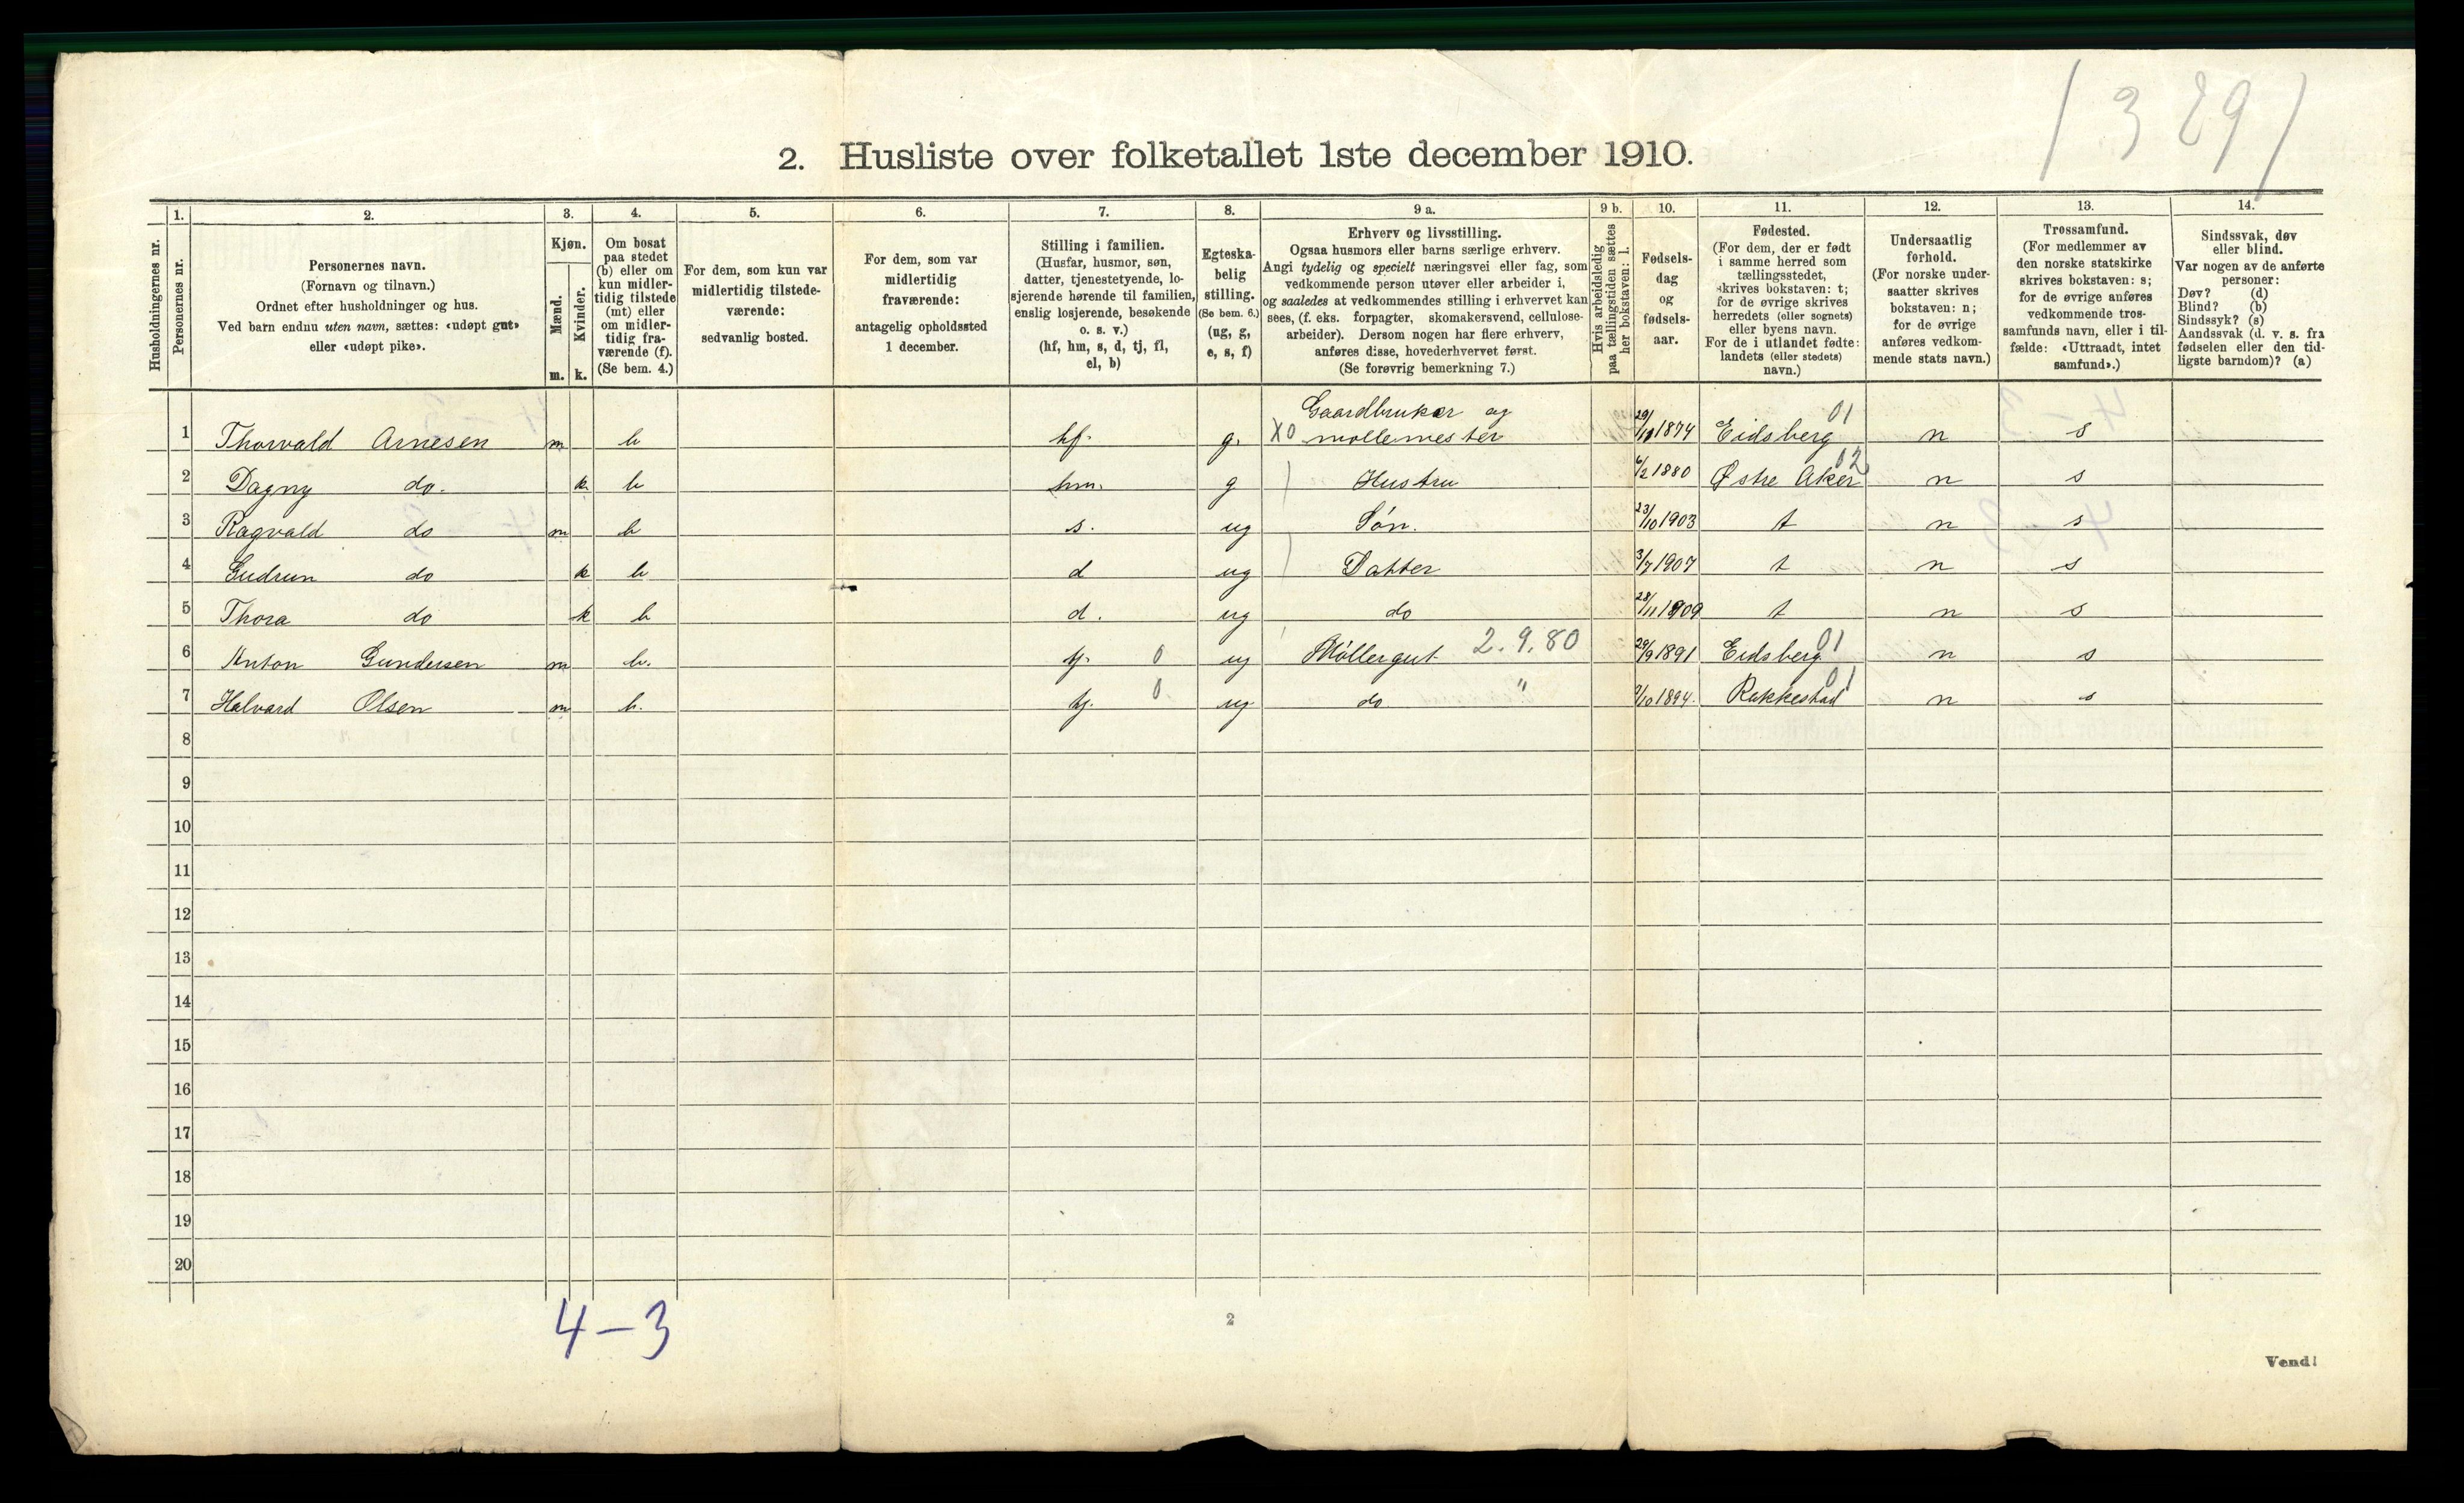 / 3 29 /
2. Husliste over folketallet 1ste december 1910.
1. 2. 3. 4. 5. 6. 7. 8. 9 a. 9 b. 10. 11. 12. 13. 14.
Husholdningernes nr.
Personernes nr.
Personernes navn.
(Fornavn og tilnavn.)
Ordnet efter husholdninger og hus.
Ved barn endnu uten navn, sættes: «udøpt gut»
eller «udøpt pike».
Kjøn.
Mænd.
Kvinder.
m. k.
Om bosat
paa stedet
(b) eller om
kun midler-
tidig tilstede
(mt) eller
om midler-
tidig fra-
værende (f).
(Se bem. 4.)
For dem, som kun var
midlertidig tilstede-
værende:
sedvanlig bosted.
For dem, som var
midlertidig
fraværende:
antagelig opholdssted
1 december.
Stilling i familien.
(Husfar, husmor, søn,
datter, tjenestetyende, lo-
sjerende hørende til familien,
enslig losjerende, besøkende
o. s. v.)
(hf, hm, s, d, tj, fl,
el, b)
Egteska-
belig
stilling.
(Se bem. 6.)
(ug, g,
e, s, f)
Erhverv og livsstilling.
Ogsaa husmors eller barns særlige erhverv.
Angi tydelig og specielt næringsvei eller fag, som
vedkommende person utøver eller arbeider i,
og saaledes at vedkommendes stilling i erhvervet kan
sees, (f. eks. forpagter, skomakersvend, cellulose-
arbeider). Dersom nogen har flere erhverv,
anføres disse, hovederhvervet først.
(Se forøvrig bemerkning 7.)
Hvis arbeidsledig
paa tællingstiden sættes
her bokstaven: l.
Fødsels-
dag
og
fødsels-
aar.
Fødested.
(For dem, der er født
i samme herred som
tællingsstedet,
skrives bokstaven: t;
for de øvrige skrives
herredets (eller sognets)
eller byens navn.
For de i utlandet fødte:
landets (eller stedets)
navn.)
Undersaatlig
forhold.
(For norske under-
saatter skrives
bokstaven: n;
for de øvrige
anføres vedkom-
mende stats navn.)
Trossamfund.
(For medlemmer av
den norske statskirke
skrives bokstaven: s;
for de øvrige anføres
vedkommende tros-
samfunds navn, eller i til-
fælde: «Uttraadt, intet
samfund».)
Sindssvak, døv
eller blind.
Var nogen av de anførte
personer:
Døv? (d)
Blind? (b)
Sindssyk? (s)
Aandssvak (d. v. s. fra
fødselen eller den tid-
ligste barndom)? (a)
Gaardbruker og
1 Thorvald Arnesen m b hf. g. X0 møllemester 29/11 1874 Eidsberg 01 n s
2 Dagny do. k b hm. g Hustru 6/2 1880 Østre Aker 02 n s
3 Ragvald do m b s. ug Søn. 23/10 1903 t n s
4 Gudrun do k b d ug Datter 3/7 1907 t n s
5 Thora do k b d. ug do 28/11 1909 t n s
6 Anton Gundersen m b. tj. 0 ug Møllergut 2.9.80 29/9 1891 Eidsberg 01 n s
7 Halvard Olsen m b. tj. 0 ug do " 9/10 1894. Rakkestad 01 n s
8
9
10
11
12
13
14
15
16
17
18
19
20
4-3
2
Vend!